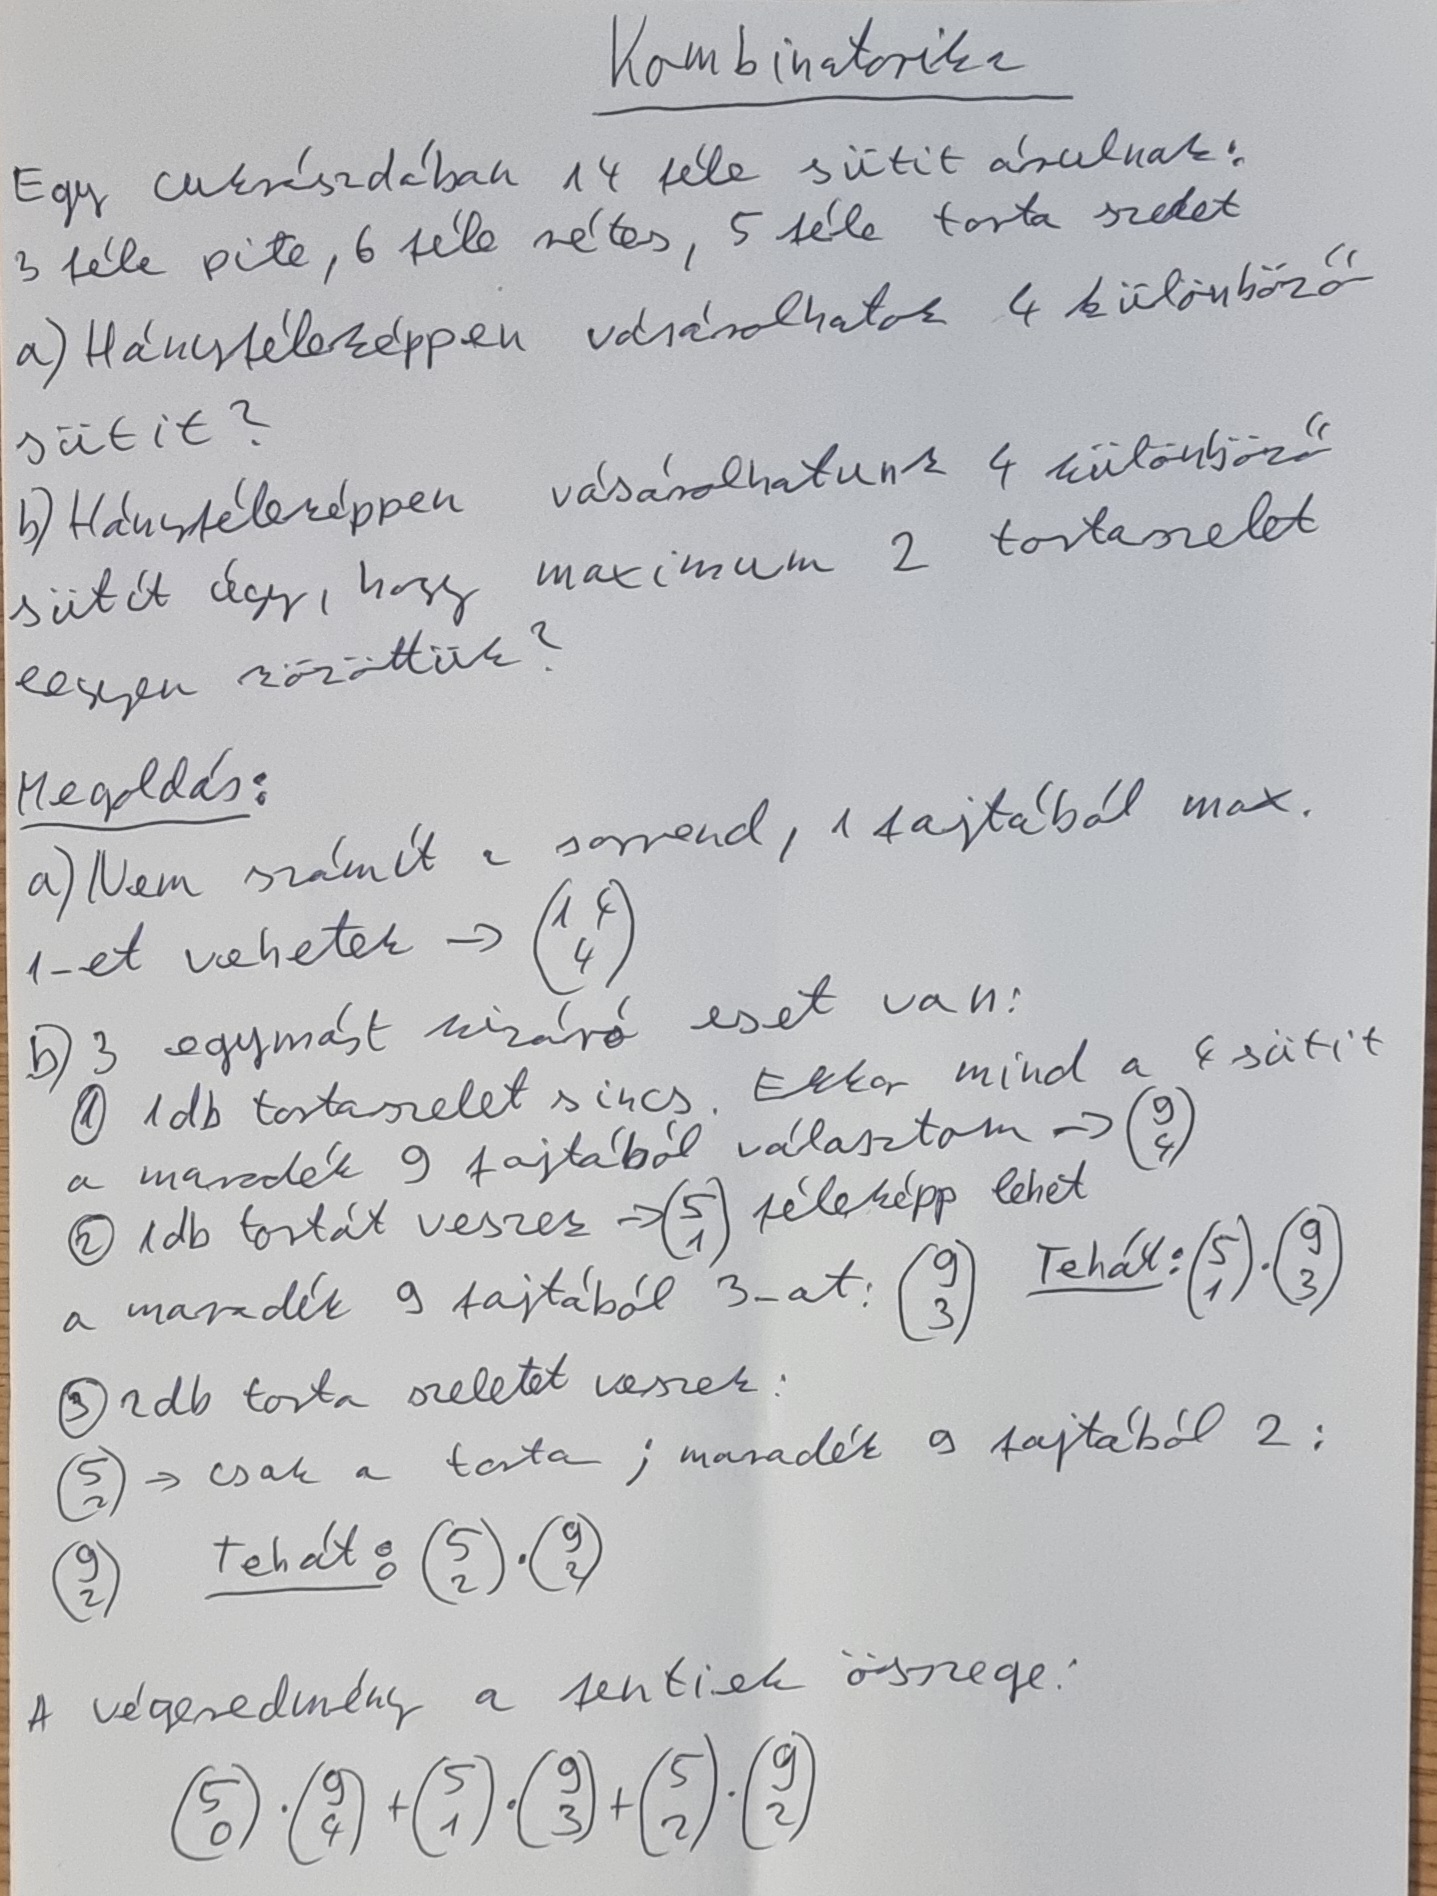 Kombinatorika
Egy cukrászdában 14 féle sütit árulnak:
3 féle pite, 6 féle rétes, 5 féle torta szelet
a) Hányféleképpen vásárolhatok 4 különböző
sütit?
b) Hányféleképpen vásárolhatunk 4 különböző
sütit úgy, hogy maximum 2 tortaszelet
legyen közöttük?
Megoldás:
a) Nem számít a sorrend, 1 fajtából max.
1-et vehetek → (14 4)
b) 3 egymást kizáró eset van:
① 1db tortaszelet sincs. Ekkor mind a 4 sütit
a maradék 9 fajtából választom → (9 4)
② 1db tortát veszek → (5 1) féleképp lehet
a maradék 9 fajtából 3-at: (9 3) Tehát: (5 1)·(9 3)
③ 2db torta szeletet veszek:
(5 2) → csak a torta ; maradék 9 fajtából 2:
(9 2) Tehát: (5 2)·(9 2)
A végeredmény a fentiek összege:
(5 0)·(9 4)+(5 1)·(9 3)+(5 2)·(9 2)